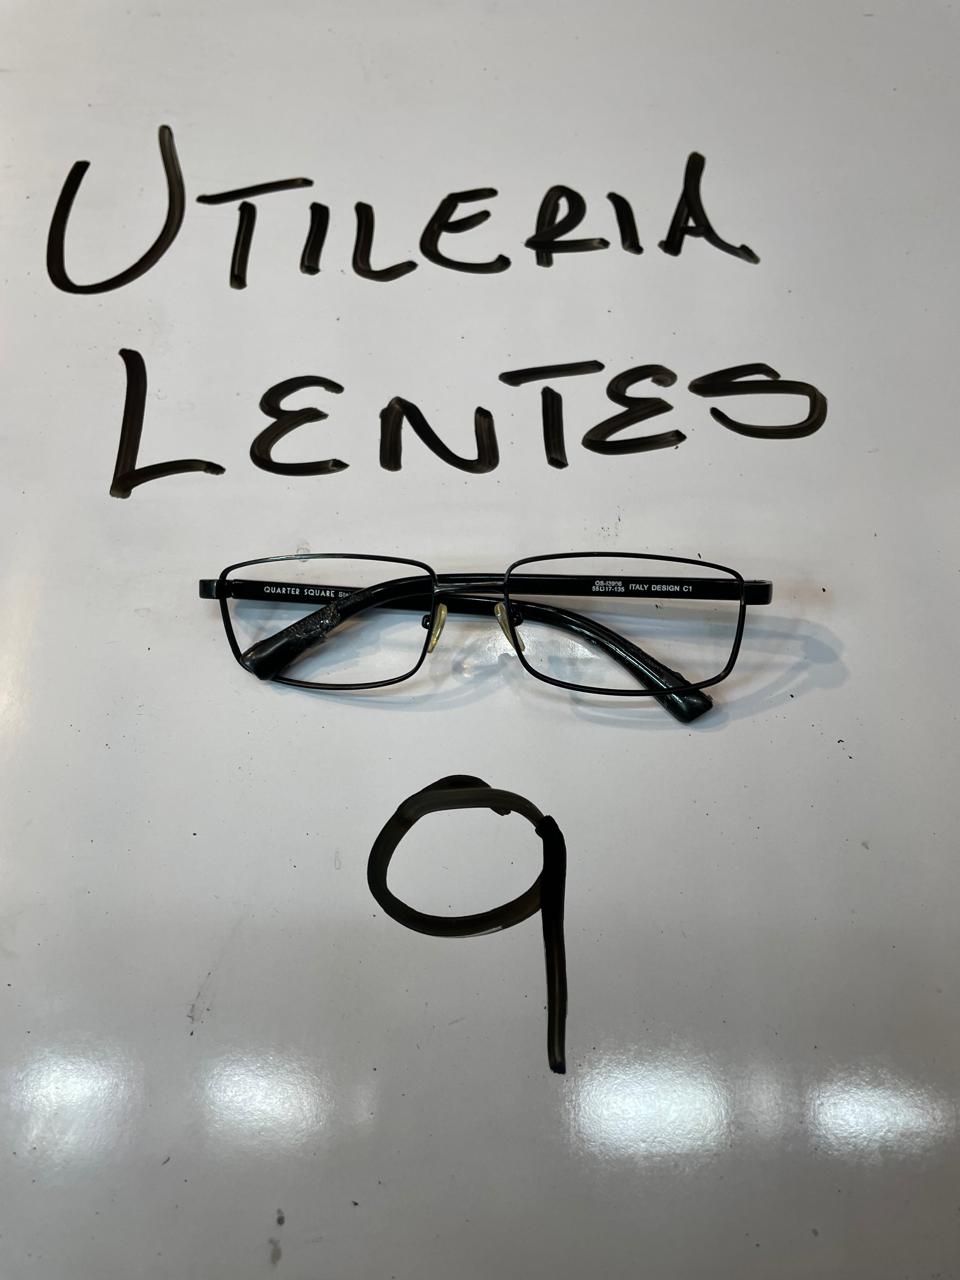 UTILERIA
LENTES
QUARTER SQUARE
55□17-135 ITALY DESIGN C1
9